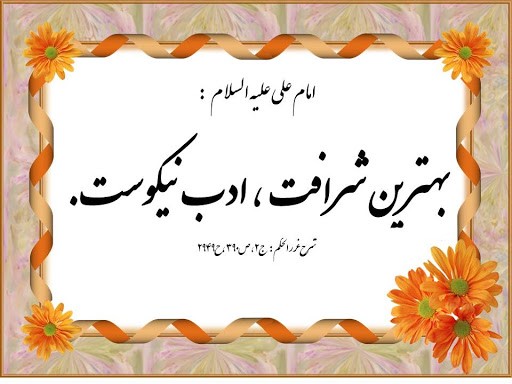 امام علی علیه السلام :
بهترین شرافت ، ادب نیکوست.
شرح غررالحکم : ج۲، ص۳۹۰، ح۲۹۴۹